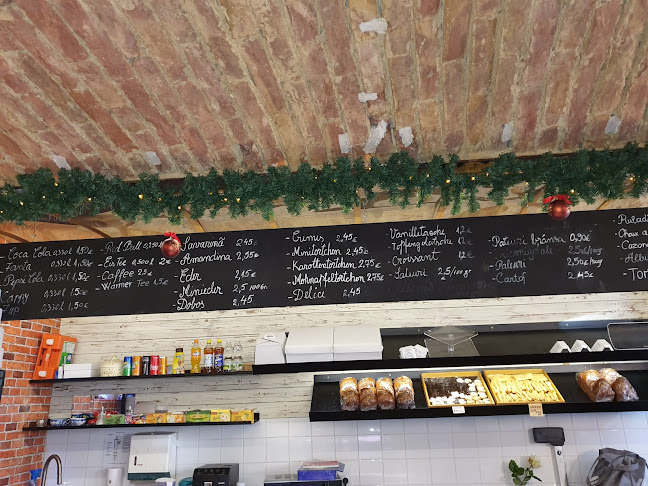 Coca Cola 0,330l 1,50€
Fanta
Pepsi Cola 0,330l 1,50€
Cappy 0,330l 1,50€
0,330l 1,50€
- Red Bull 0,250
- Eis Tee 0,500l 2€
- Caffee 2€
- Warmer Tee 1,5€
- Savarină 2,45€
- Amandina 2,55€
- Ecler 2,15€
- Miniecler 2,5 100gr.
- Dobos 2,45€
- Cremes 2,45
- Minitörtchen 2,45€
- Karottentörtchen 2,75€
- Mohnapfeltörtchen 2,75€
- Delici 2,45
- Vanilletasche 1,2€
- Topfengolatsche 1,2€
- Croissant 1,2€
- Saleuri 2,5/100gr
- Pateuri brânza 0,90€
2,5€/100g
- Pateuri 2,50€/100g
- Cartof 2,45€
- Rulad
- Choux a
- Cozona
- Albin
- Tor